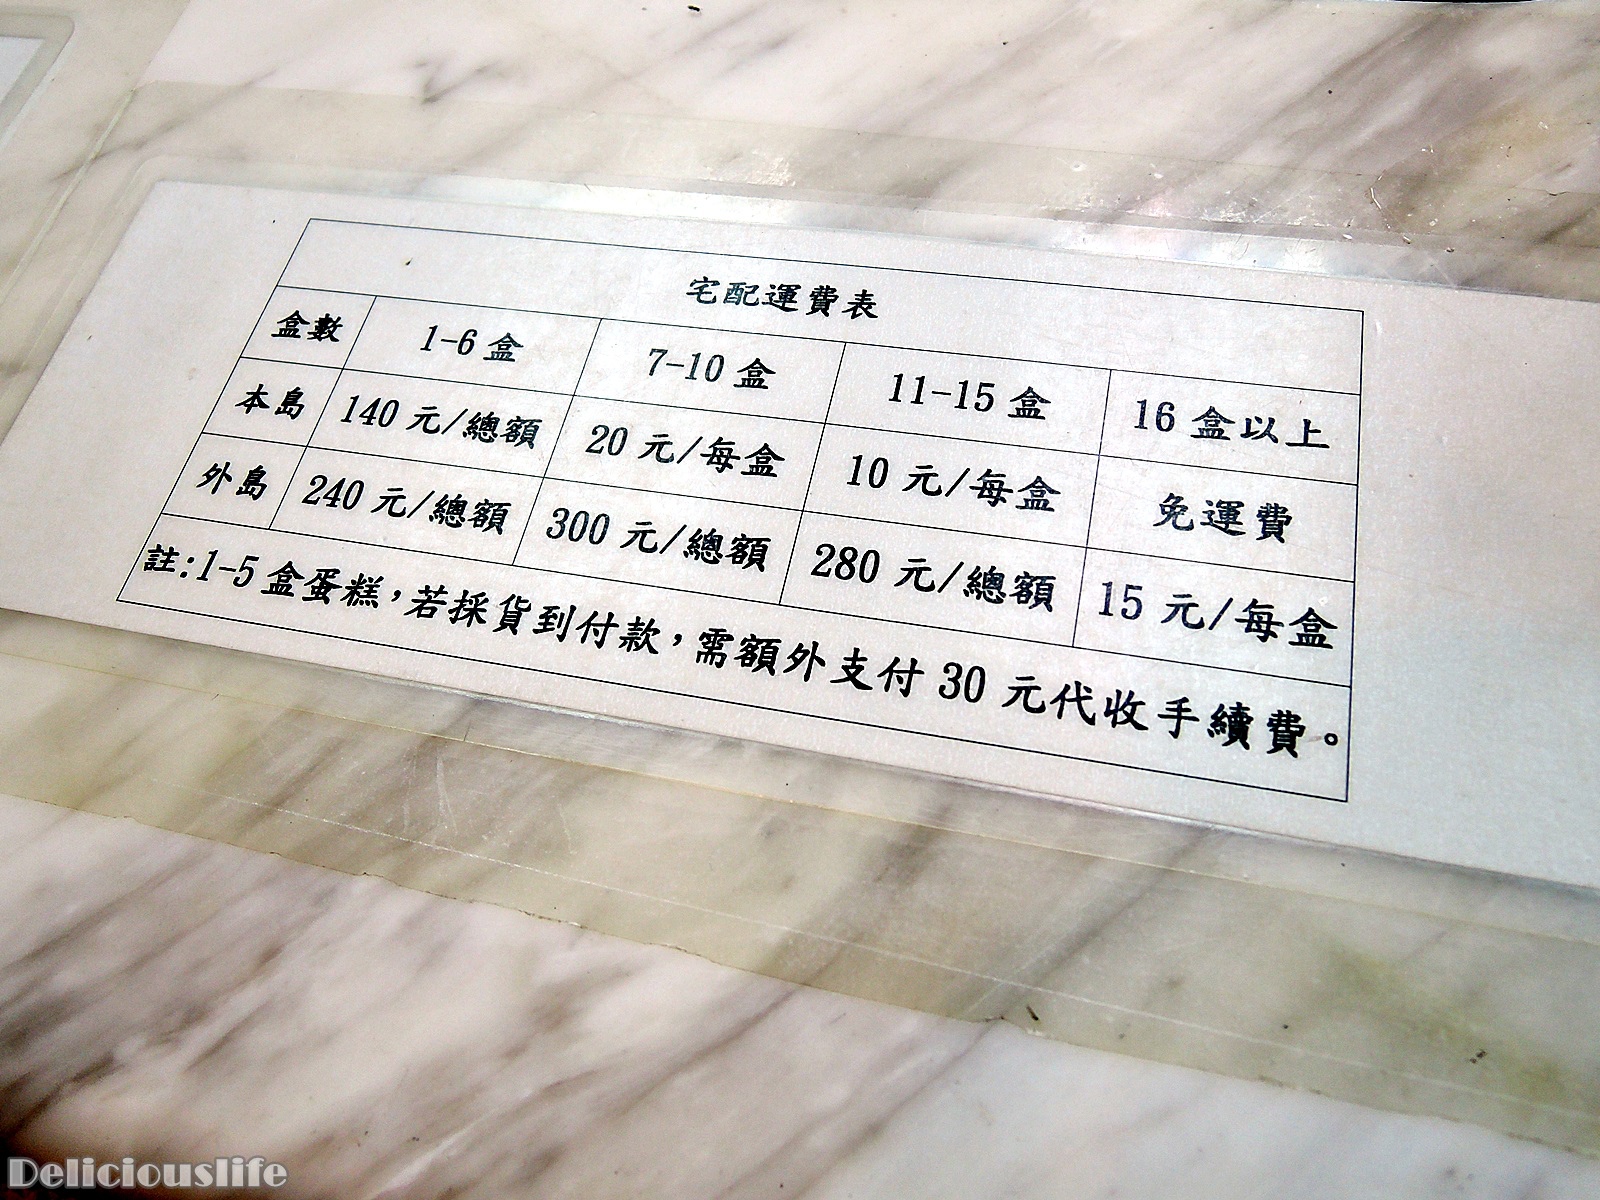 宅配運費表
盒數 1-6 盒 7-10 盒 11-15 盒 16 盒以上
本島 140 元/總額 20 元/每盒 10 元/每盒 免運費
外島 240 元/總額 300 元/總額 280 元/總額 15 元/每盒
註:1-5 盒蛋糕,若採貨到付款,需額外支付 30 元代收手續費。
Deliciouslife